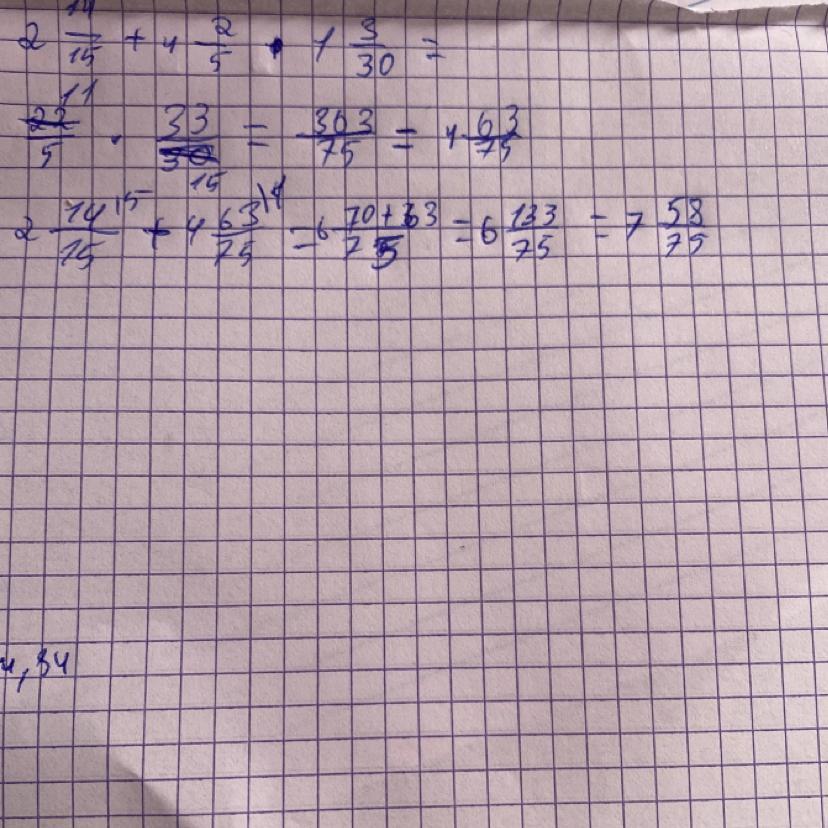 2 14/15 + 4 2/5 · 1 3/30 =
22/5 11 · 33/30 15 = 363/75 = 4 63/75
2 14/15 \5 + 4 63/75 \1 = 6 70+63/75 = 6 133/75 = 7 58/75
4,34